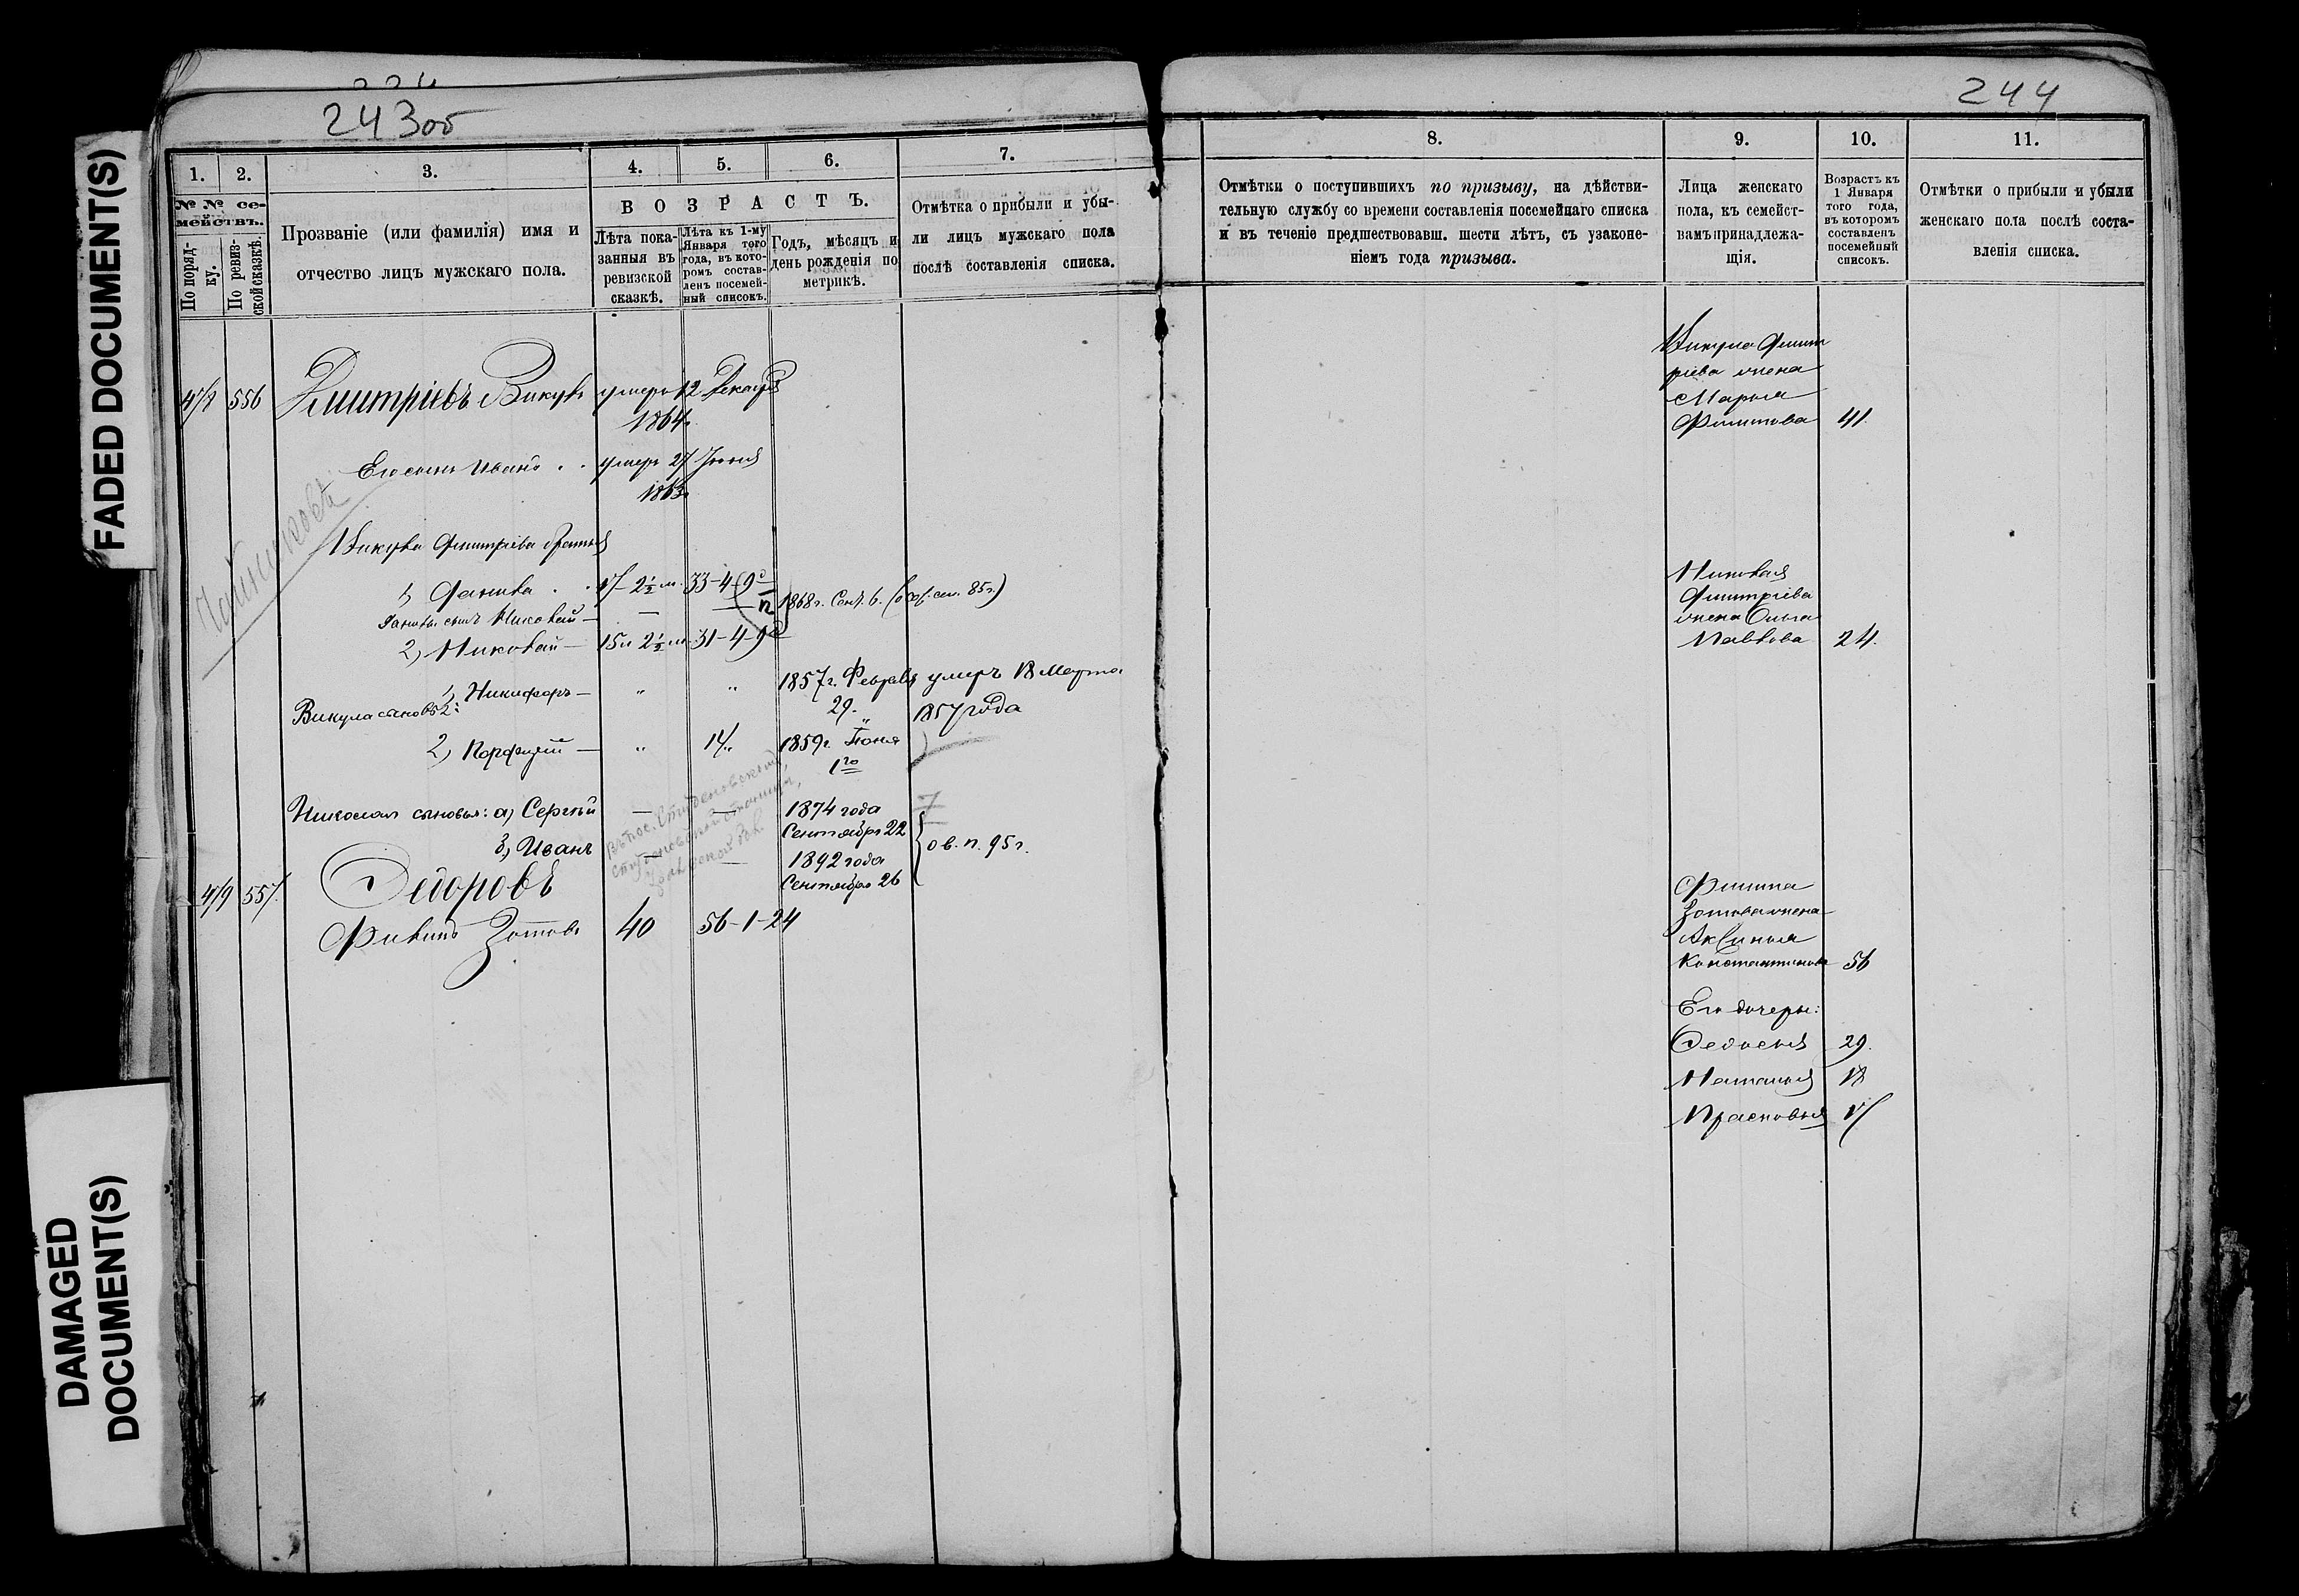 FADED DOCUMENT(S)
DAMAGED
DOCUMENT(S)
243об
1.
2.
3.
4.
5.
6.
7.
№ № се-
мействъ.
По поряд-
ку.
По ревиз-
ской сказкѣ.
Прозваніе (или фамилія) имя и
отчество лицъ мужскаго пола.
ВОЗРАСТЪ.
Лѣта пока-
занныя въ
ревизской
сказкѣ.
Лѣта къ 1-му
Января того
года, въ кото-
ромъ состав-
ленъ посемей-
ный списокъ.
Годъ, мѣсяцъ и
день рожденія по
метрикѣ.
Отмѣтка о прибыли и убы-
ли лицъ мужскаго пола
послѣ составленія списка.
556 Дмитріевъ Викулъ умеръ 12 Декабря
1864.
Его сынъ Иванъ . . умеръ 27 Іюня
1863.
Викула Дмитріева братья
1) Данила . . 17-2½ м. 33-4-9
Данилы сынъ Николай — — 1868 г. Сент. 6.
2) Николай — 15 и 2½ м. 31-4-9
Викула сыновья:
1, Никифоръ — " " 1857 г. Февраля умеръ 18 Марта
29. 1857 года
2, Порфирій — " 14 " 1859 г. Іюня
1го
Николая сыновья: а) Сергѣй — — 1874 года
Сентября 22
б) Иванъ — — 1892 года
Сентября 26
о в. п. 95 г.
557. Ѳедоровъ
Филипъ Зотовъ 40 56-1-24
244
8.
9.
10.
11.
Отмѣтки о поступившихъ по призыву, на дѣйстви-
тельную службу со времени составленія посемейнаго списка
и въ теченіе предшествовавш. шести лѣтъ, съ узаконе-
ніемъ года призыва.
Лица женскаго
пола, къ семейст-
вамъ принадлежа-
щія.
Возрастъ къ
1 Января
того года,
въ которомъ
составленъ
посемейный
списокъ.
Отмѣтки о прибыли и убыли
женскаго пола послѣ соста-
вленія списка.
Викула Дмит
ріева жена
Марья
Филипова 41.
Николая
Дмитріева
жена Ольга
Павлова 24.
Филипа
Зотова жена
Аксинья
Константинова 56
Его дочери:
Ѳедосья 29.
Наталья 18
Прасковья 17